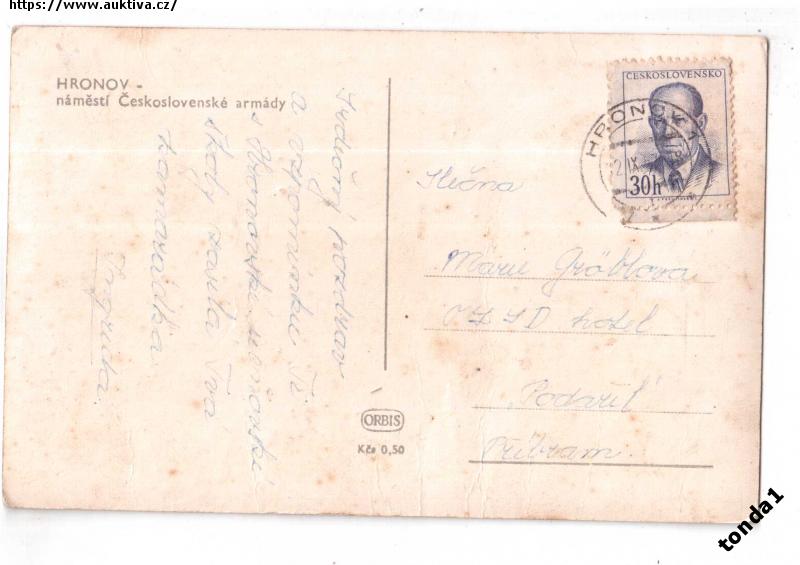 https://www.auktiva.cz/
HRONOV -
náměstí Československé armády
Srdečný pozdrav
a vzpomínku Ti
s Hronovské učňovské
školy zasílá Tvá
kamarádka
Ingrida.
ORBIS
Kčs 0,50
ČESKOSLOVENSKO
30h
HRONOV 1
IX
Slečna
Marie Gröblova
hotel
Příbram.
tonda1